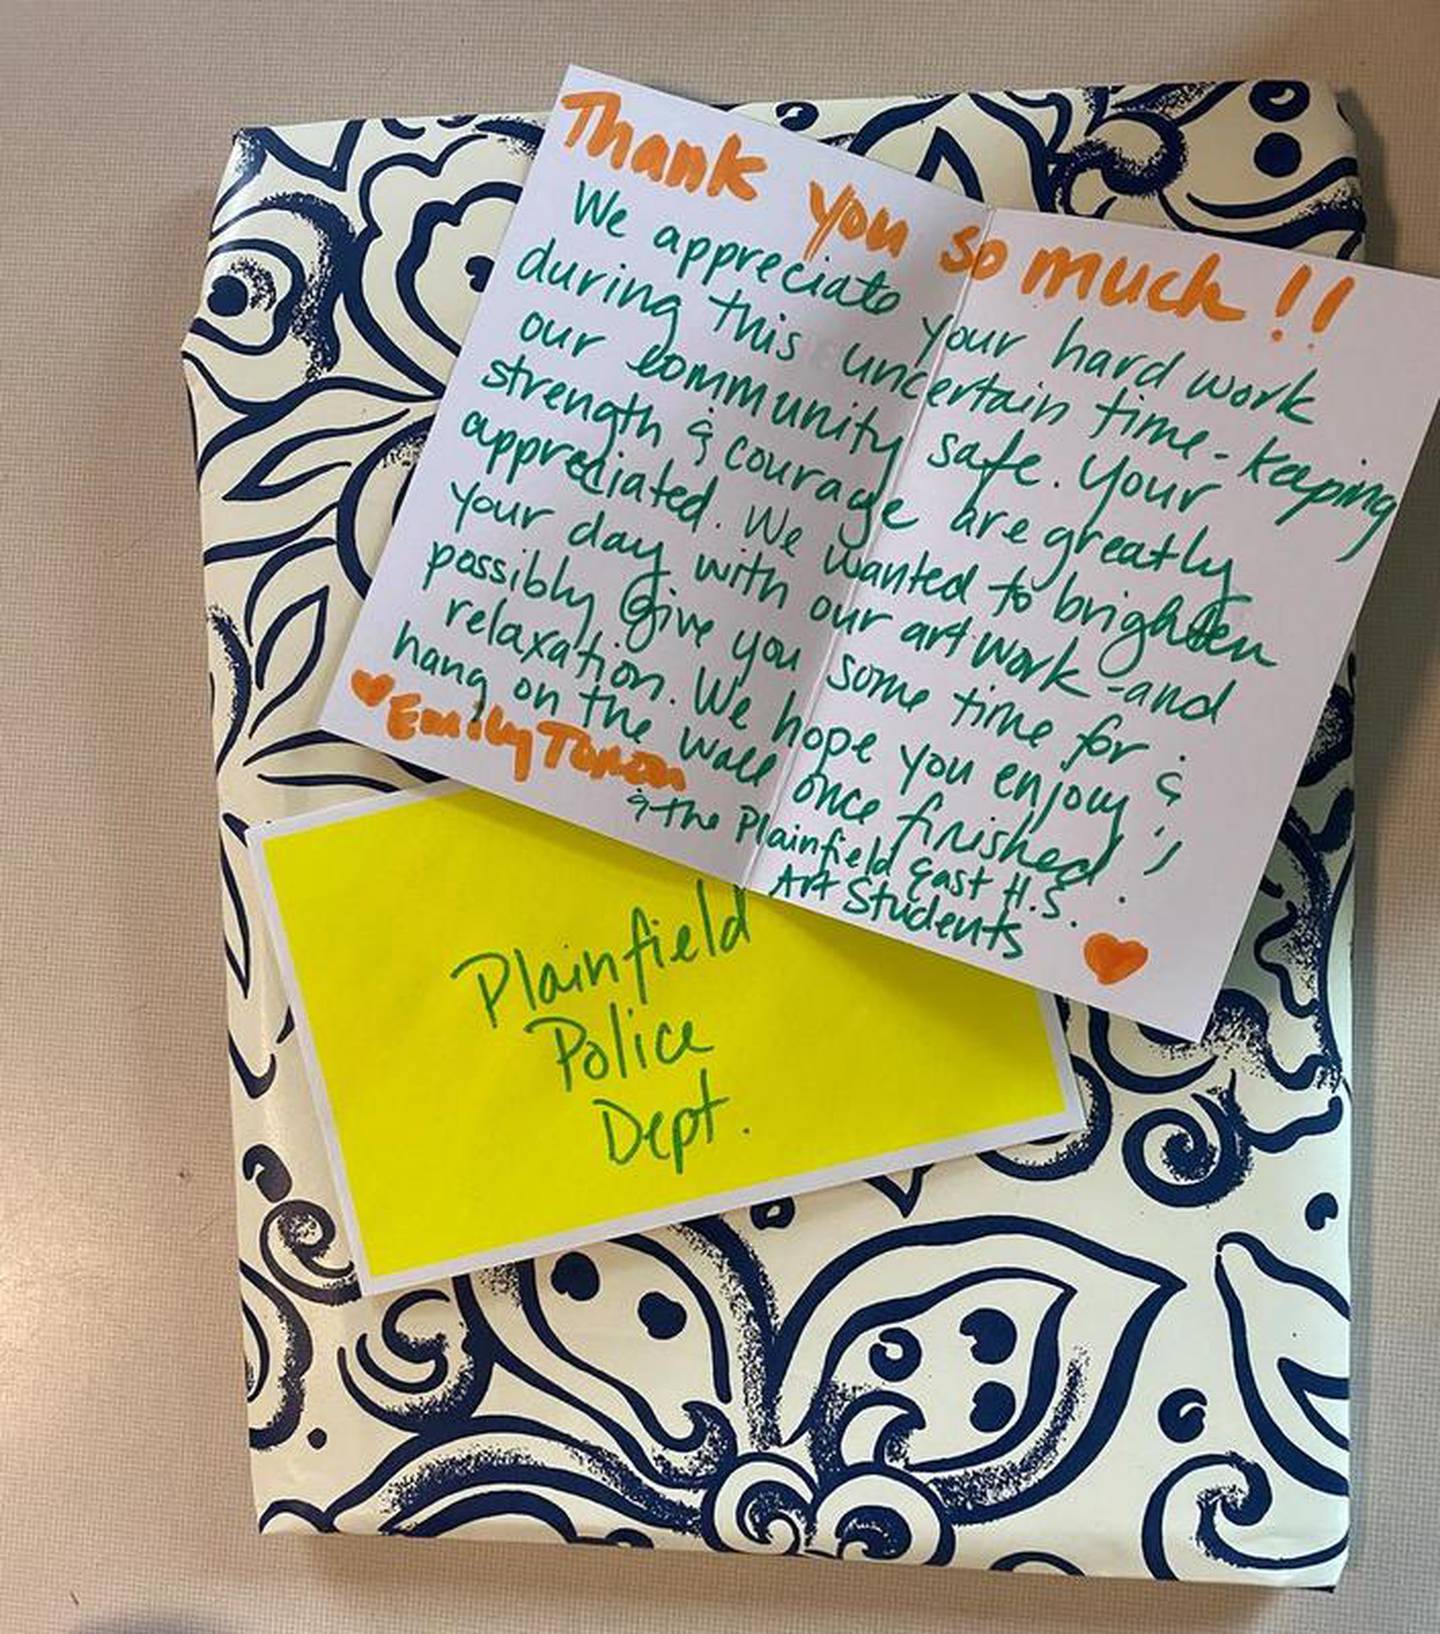 Thank you so much!!
We appreciate your hard work
during this uncertain time - keeping
our community safe. Your
strength & courage are greatly
appreciated. We wanted to brighten
your day with our artwork - and
possibly give you some time for
relaxation. We hope you enjoy &
hang on the wall once finished!
Emily
& the Plainfield East H.S.
Art Students
Plainfield
Police
Dept.